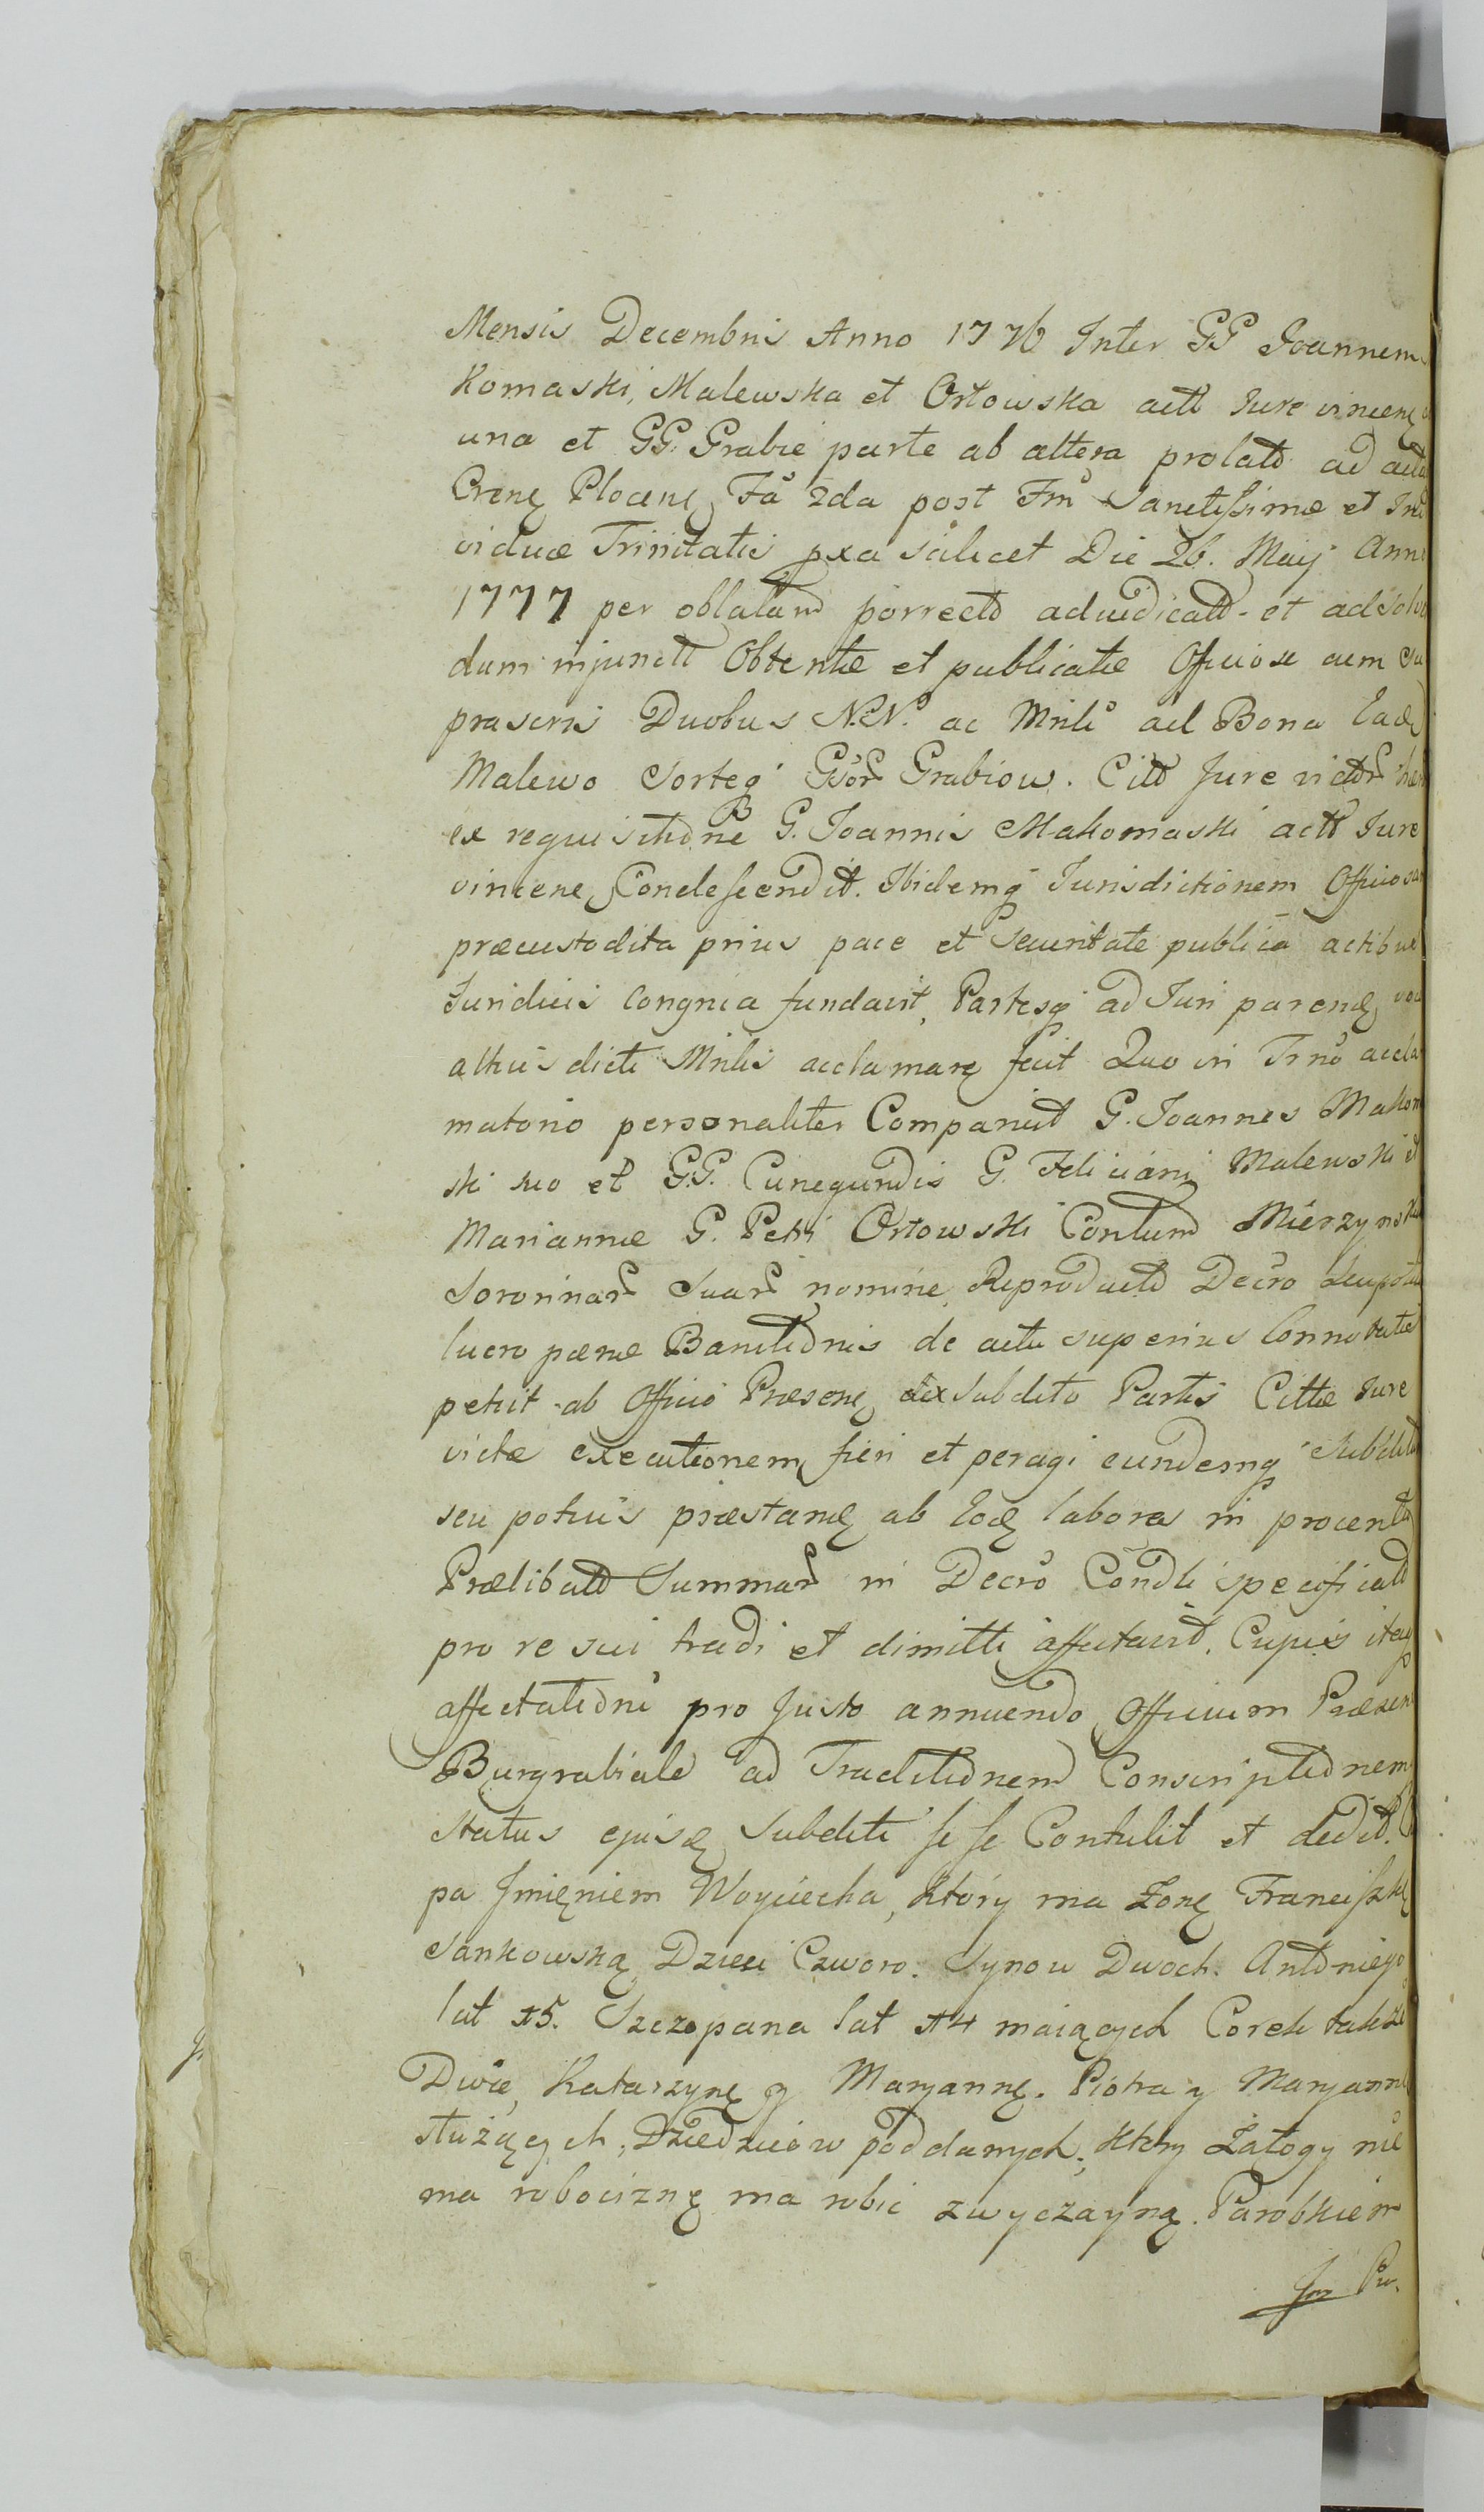 Mensis Decembris Anno 1776 Inter GG Joannem
Komaski, Malewska et Orłowska actt Jure vincenę
una et GG. Grabie parte ab altera prolatt ad acta
Crenę Plocenę Fã 2da post Fm̃ Sanctissimæ et Indi
viduæ Trinitatis pxa scilicet Die 26. Maij Anno
1777 per oblatam porrecto adiudicatt et ad solv
dum injunctt Obtentæ et publicatæ Officiose cum Su
prascris Duobus N.N. ac Mrili ad Bona Eadę
Malewo Sorteq Gsor Grabiow. Citt Jure victor
ex requisitione G. Joannis Makomaski actt Jure
vincenę Condescendit. Ibidemq Jurisdictionem Officiosam
præcustodita prius pace et Securitate publica actibus
Juridicis Congrua fundavit, Partesq ad Juri parenđ
altius dicti Mrilis acclamarę fecit Quo in Trno accla
matorio personaliter Comparuit G. Joannes Makom
ski suo et G.G. Cunegundis G. Feliciani Malewski et
Mariannæ G. Petri Orłowski Contum Mierzynski
Sororinar Suar nomine, Reproducto Decro
lucro pænæ Bannitionis de actu superius Connotatæ
petiit ab Officio Præsenę ex Subdito Partis Cittæ Jure
victæ executionem fieri et peragi eundemq Subditum
seu potius præstanđ ab Eođ labores in procenta
Prælibatt Summar in Decro Condli specificatt
pro re sui tradi et dimitti affectavit. Cujus itaq
affectationi pro Justo annuendo Officium Præsens
Burgrabiale ad Traditionem Conscriptionem
status ejusđ Subditi se se Contulit et dedit.
pa Jmięniem Woyciecha, który ma Żonę Franciszkę
Sankowską, Dzieci Czworo. Synow Dwoch. Antoniego
lat 15. Szczepana lat 14 maiących Corek takze
Dwie, Katarzynę y Maryannę. Piotra y Maryanne
służących, Dziedzicow poddanych, ktory Załogy nie
ma robociznę ma robic zwyczayną. Parobkiem